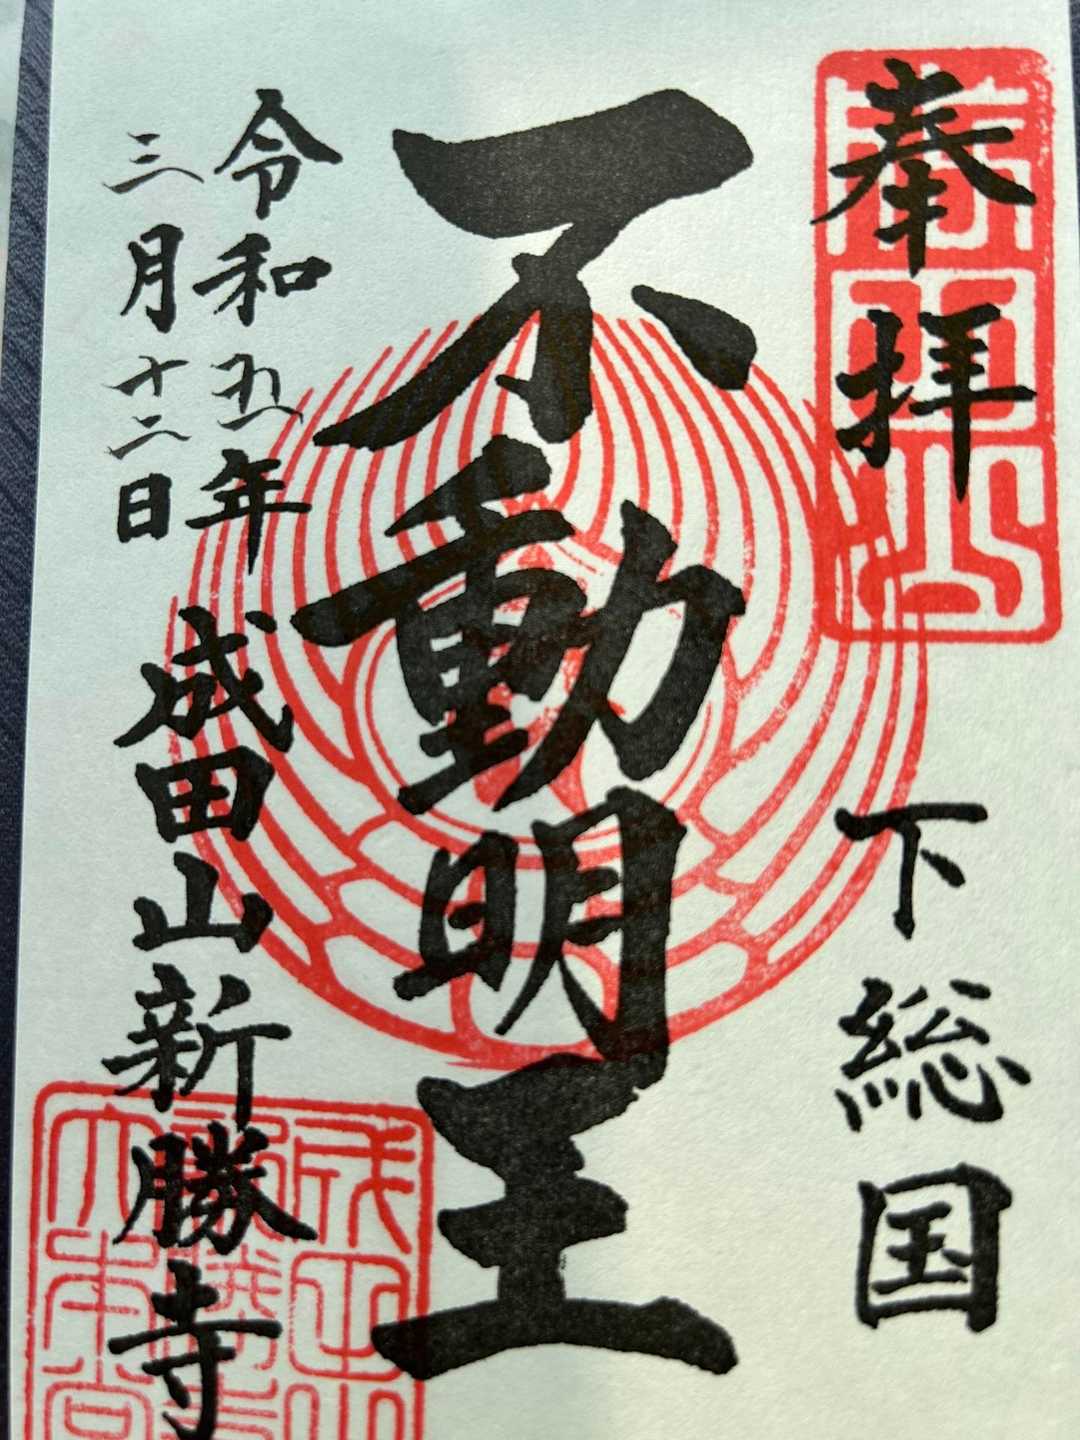 奉拝
下総国
不動明王
令和五年
三月十二日
成田山新勝寺